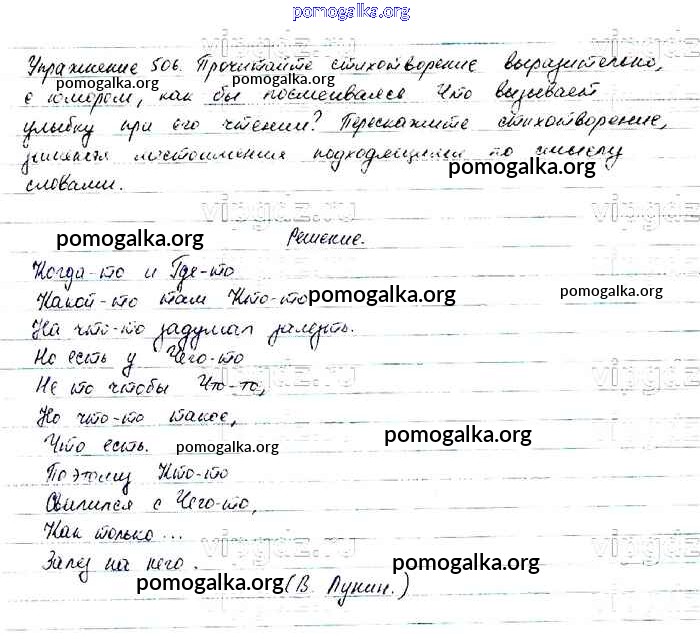 pomogalka.org
Упражнение 506. Прочитайте стихотворение выразительно,
pomogalka.org pomogalka.org
с юмором, как бы посмеиваясь Что вызывает
улыбку при его чтении? Перескажите стихотворение,
местоимения подходящими по смыслу
pomogalka.org
словами.
vipgdz.ru vipgdz.ru
pomogalka.org Решение.
Когда-то и Где-то
Какой-то там Кто-то pomogalka.org pomogalka.org
На что-то задумал залезть.
Но есть у Чего-то
vipgdz.ru vipgdz.ru
Не то чтобы Что-то,
Но что-то такое,
pomogalka.org
Что есть. pomogalka.org
Поэтому Кто-то
Свалился с Чего-то,
Как только...
vipgdz.ru vipgdz.ru
Залез на него. pomogalka.org
pomogalka.org (В. Лунин.)